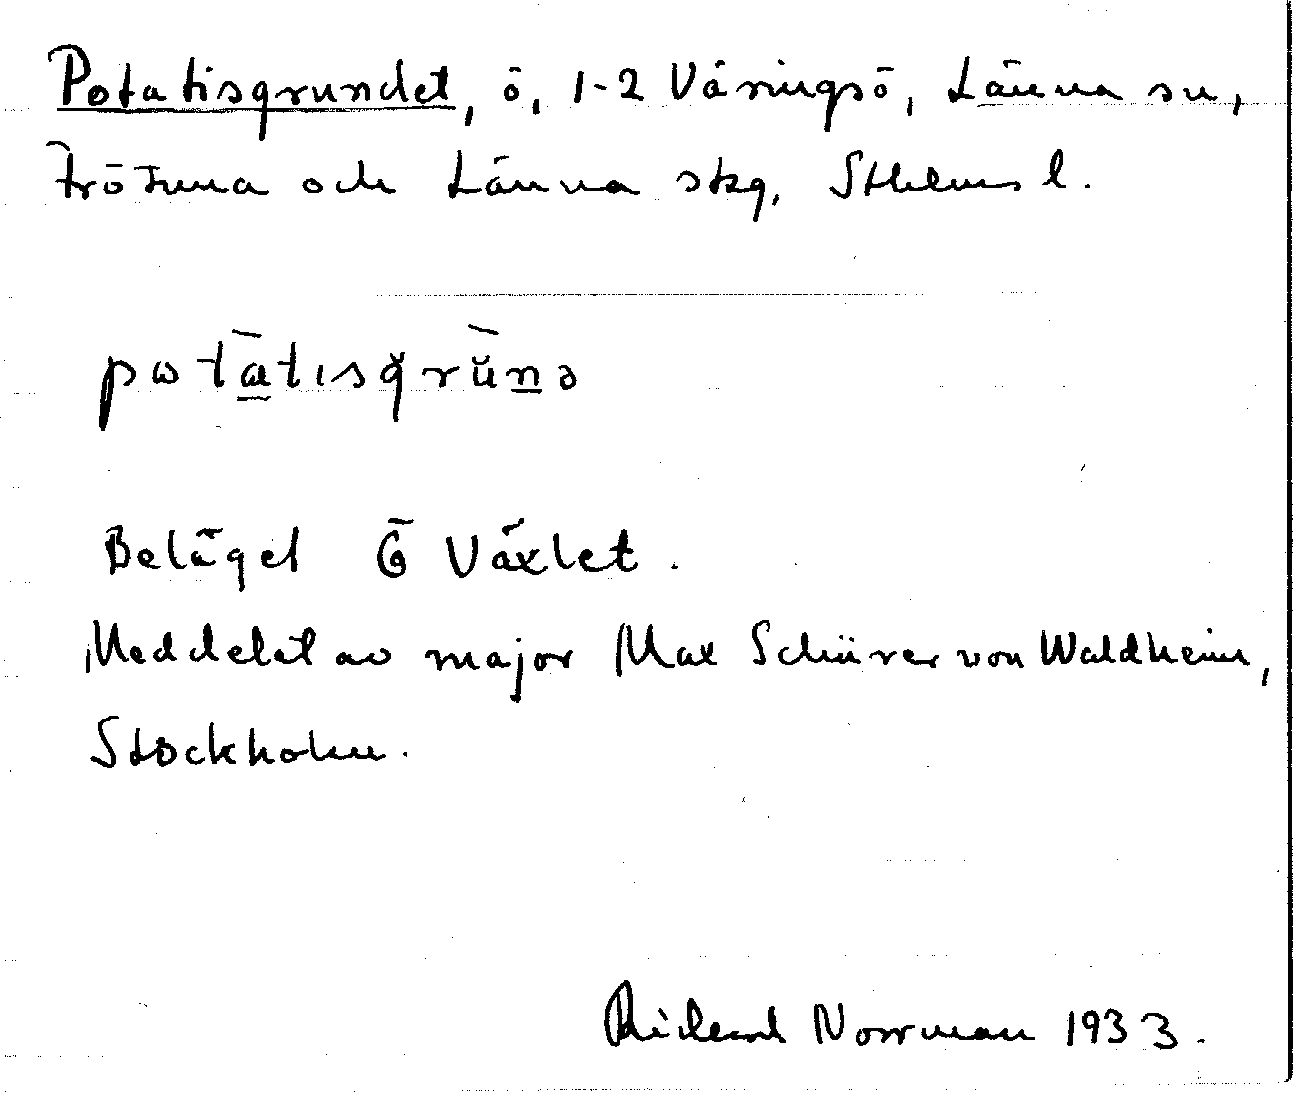 Potatisgrundet, ö, 1-2 Väringsö, Länna sn,
Frötuna och Länna skg, Sthlms l.
potatisgrunə
Beläget Ö Växlet.
Meddelat av major Max Schürer von Waldheim,
Stockholm.
Rickard Norrman 1933.